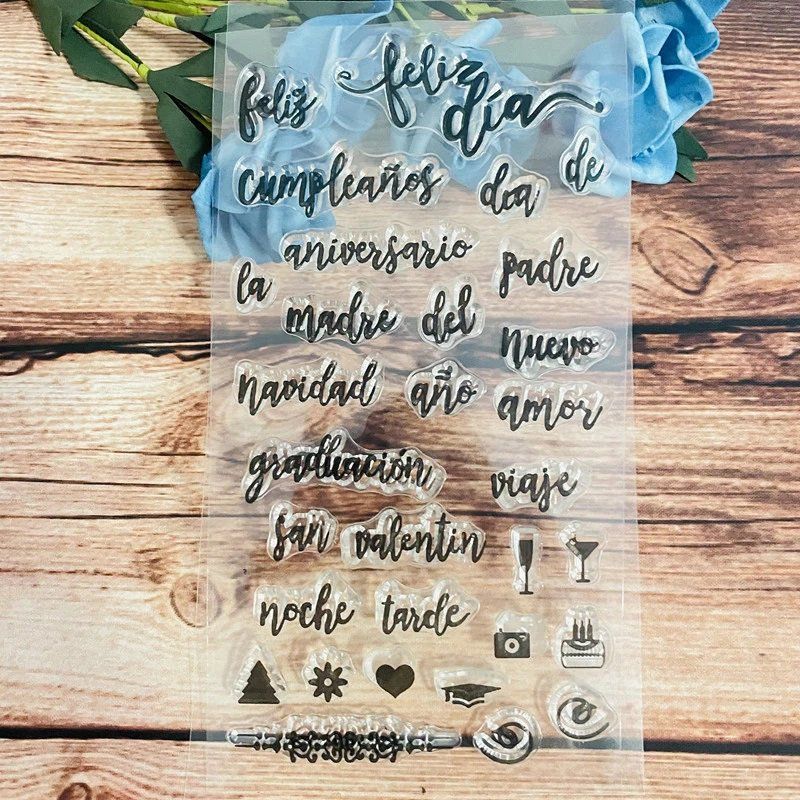 feliz
feliz día
cumpleaños día de
aniversario
la padre
madre del
nuevo
navidad año amor
graduación
viaje
san valentin
noche tarde